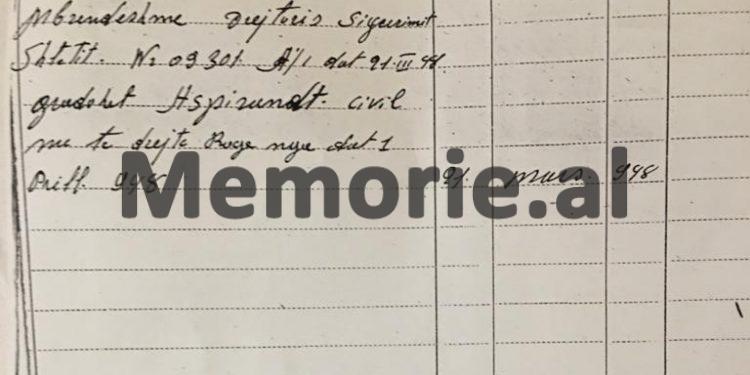 Mbrendeshme Drejtoris Sigurimit
Shtetit. Nr 09301 A/1 dat 21.III 48.
gradohet Aspirandt. civil
me te drejte Roge nga dat 1
Prill. 948 21. mars. 948
Memorie.al